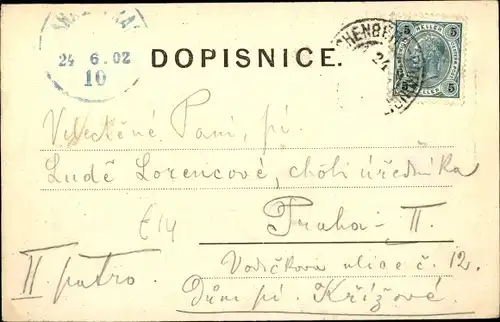 24 6.02
10
DOPISNICE.
5 HELLER 5
5 5
Velectěné Paní, pí
Luďě Lorencové, choti úředníka
E14
Praha-II.
II patro.
Vodičkova ulice č. 12.
Dům pí. Křížové.